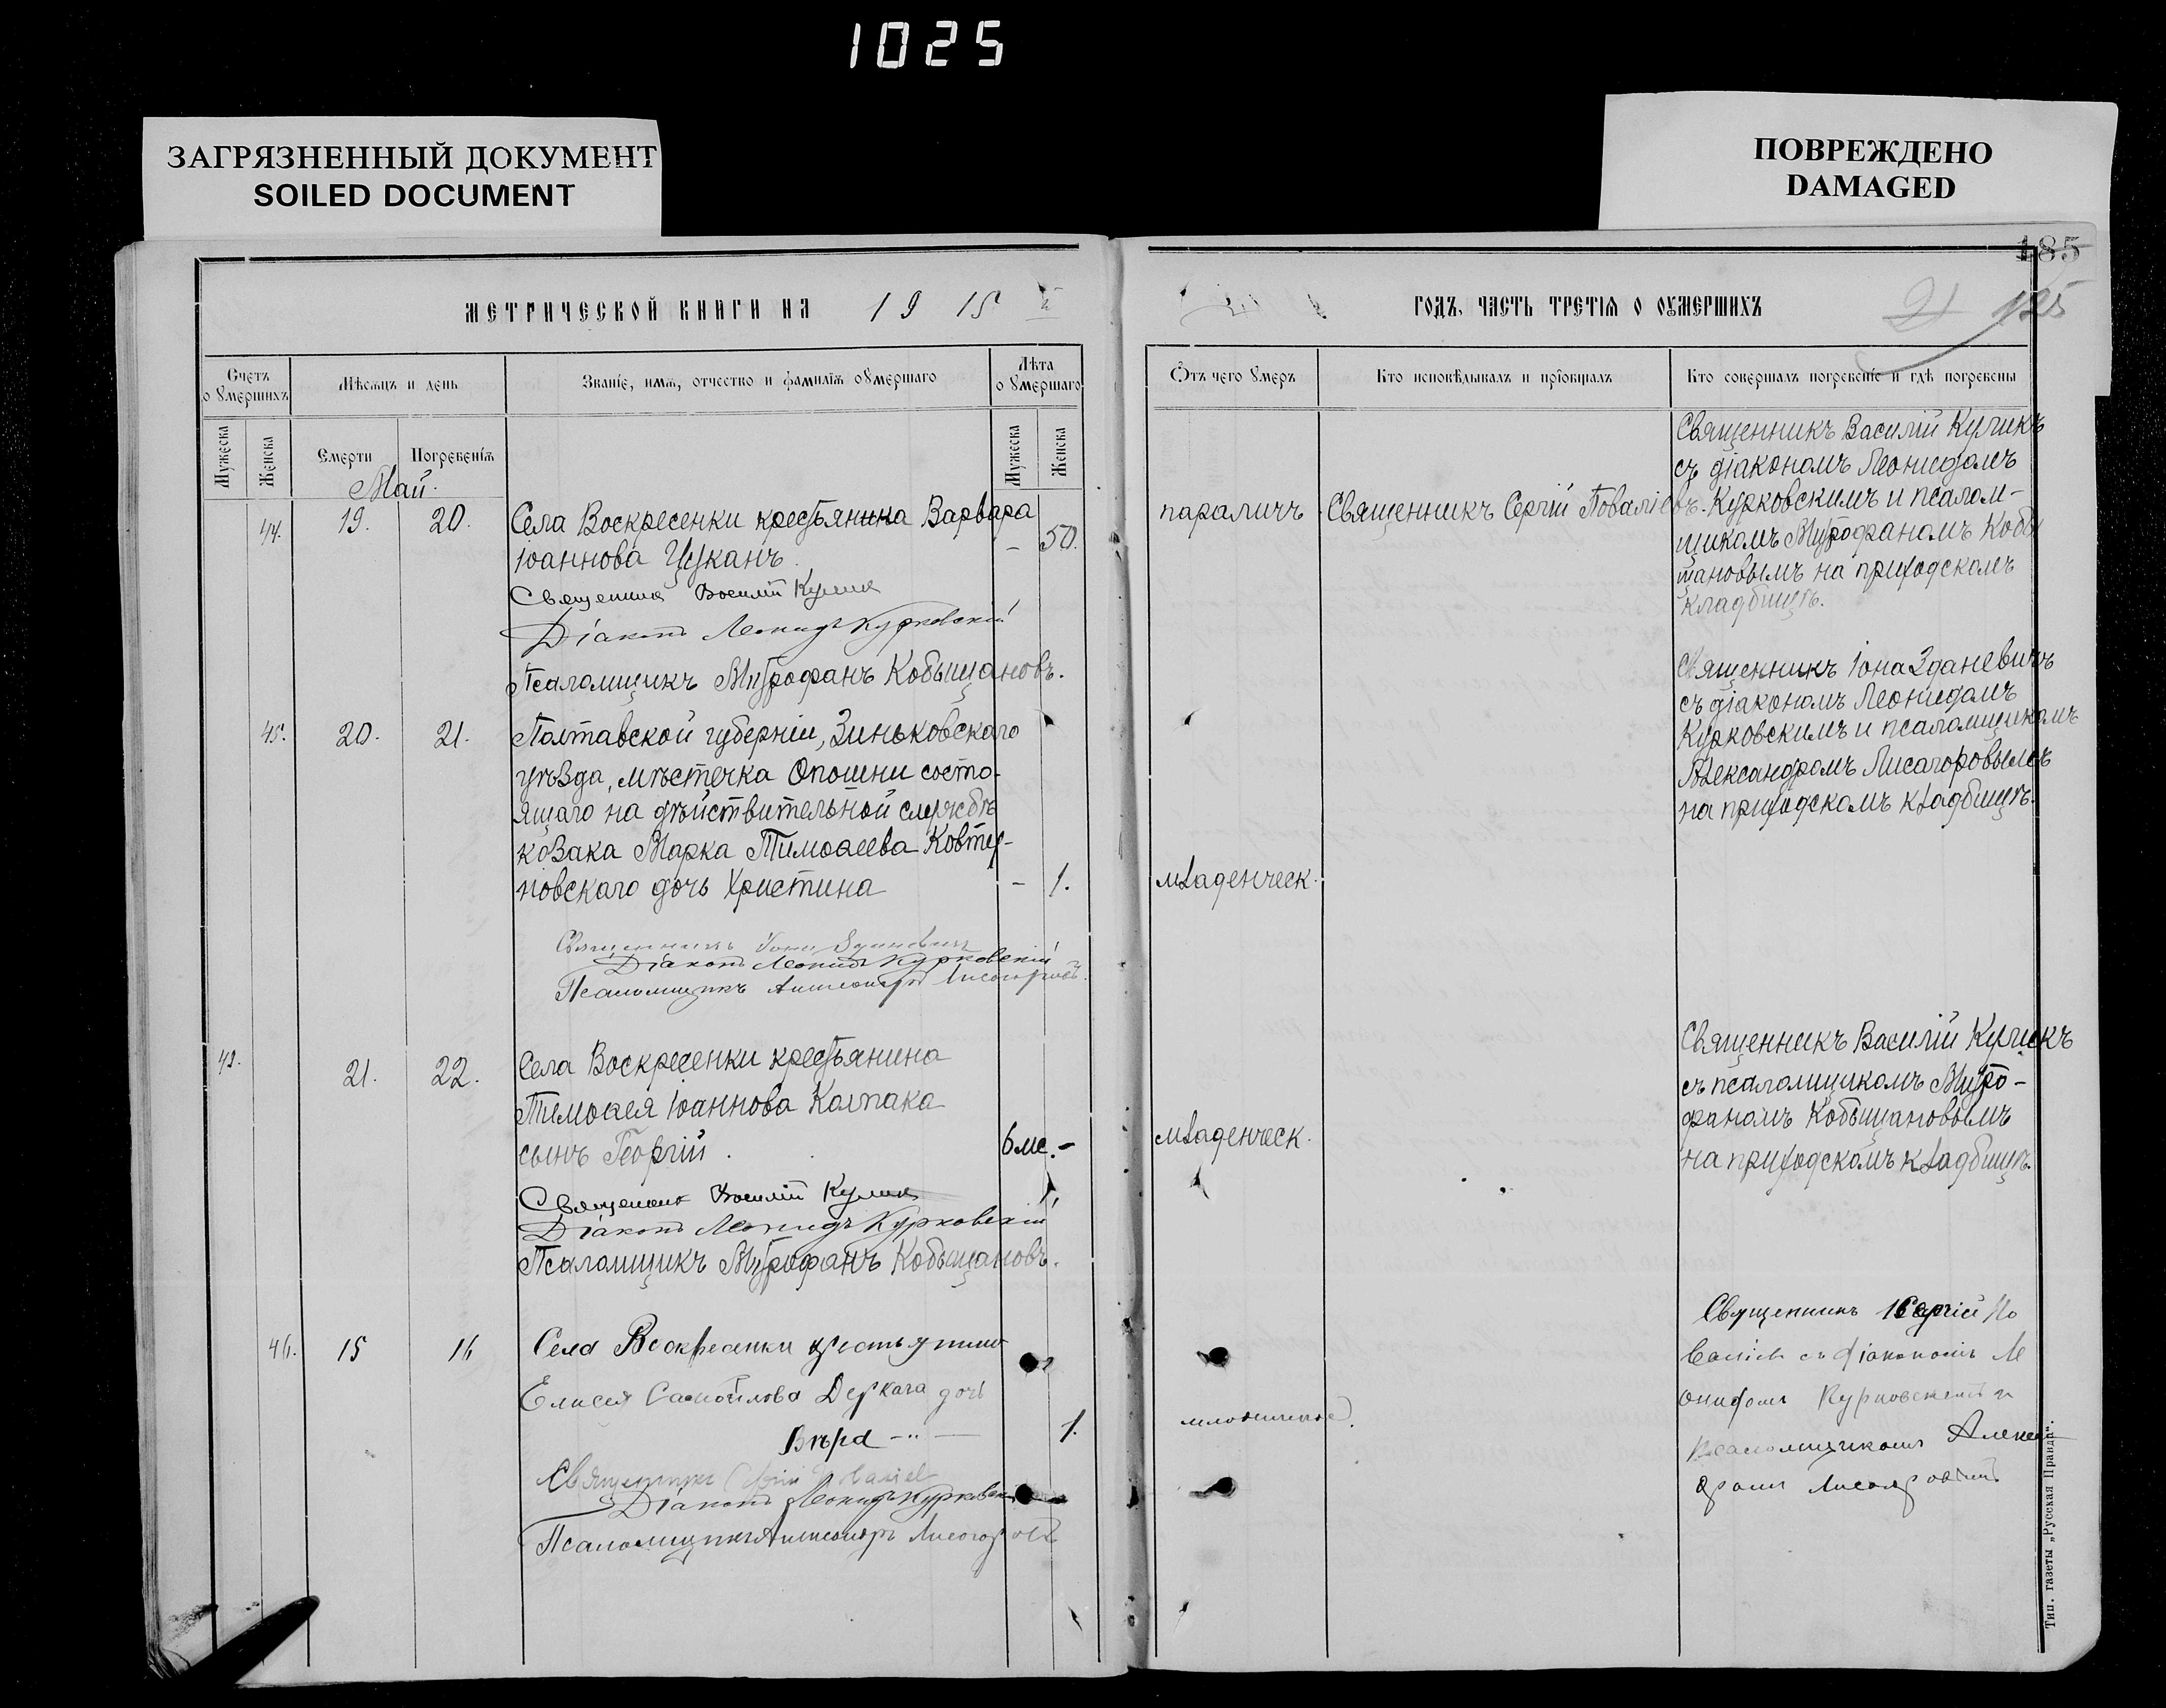 1025
ЗАГРЯЗНЕННЫЙ ДОКУМЕНТ
SOILED DOCUMENT
ПОВРЕЖДЕНО
DAMAGED
185
МЕТРИЧЕСКОЙ КНИГИ НА 1915
ГОДЪ, ЧАСТЬ ТРЕТІЯ О ОУМЕРШИХЪ
21 185
Счетъ оумершихъ
Мѣсяцъ и день
Званіе, имя, отчество и фамилія оумершаго
Лѣта оумершаго
Мужеска
Женска
Смерти
Погребенія
Мужеска
Женска
Май.
44. 19. 20.
Села Воскресенки крестьянина Варвара
Іоаннова Цуканъ - 50.
Священникъ Василій Куликъ
Діаконъ Леонидъ Курковскій
Псаломщикъ Митрофанъ Кобыщановъ.
45. 20. 21.
Полтавской губерніи, Зиньковскаго
уѣзда, мѣстечка Опошни состо-
ящаго на дѣйствительной службѣ
козака Марка Тимоѳеева Ковту-
новскаго дочь Христина - 1.
Священникъ Іона Зданевичъ
Діаконъ Леонидъ Курковскій
Псаломщикъ Александръ Лисогоровъ.
49. 21. 22.
Села Воскресенки крестьянина
Тимоѳея Іоаннова Колпака
сынъ Георгій. 6 мс. -
Священникъ Василій Куликъ
Діаконъ Леонидъ Курковскій
Псаломщикъ Митрофанъ Кобыщановъ.
46. 15 16
Села Воскресенки крестьянина
Елисея Самойлова Деркача дочь
Вѣра 1.
Священникъ Сергій
Діаконъ Леонидъ Курковскій
Псаломщикъ Александръ Лисогоровъ
Отъ чего умеръ
Кто исповѣдывалъ и пріобщалъ
Кто совершалъ погребеніе и гдѣ погребены
параличъ
Священникъ Сергій Поваліевъ.
Священникъ Василій Куликъ
съ діакономъ Леонидомъ
Курковскимъ и псалом-
щикомъ Митрофаномъ Кобы
щановымъ на приходскомъ
кладбищѣ.
младенческ.
Священникъ Іона Зданевичъ
съ діакономъ Леонидомъ
Курковскимъ и псаломщикомъ
Александромъ Лисагоровымъ
на приходскомъ кладбищѣ.
младенческ.
Священникъ Василій Куликъ
съ псаломщикомъ Митро-
фаномъ Кобыщановымъ
на приходскомъ кладбищѣ.
Священникъ Сергій По
валіевъ съ діакономъ Ле
онидомъ Курковскимъ и
псаломщикомъ Алексан
дромъ Лисогоровымъ
Тип. газеты „Русская Правда".